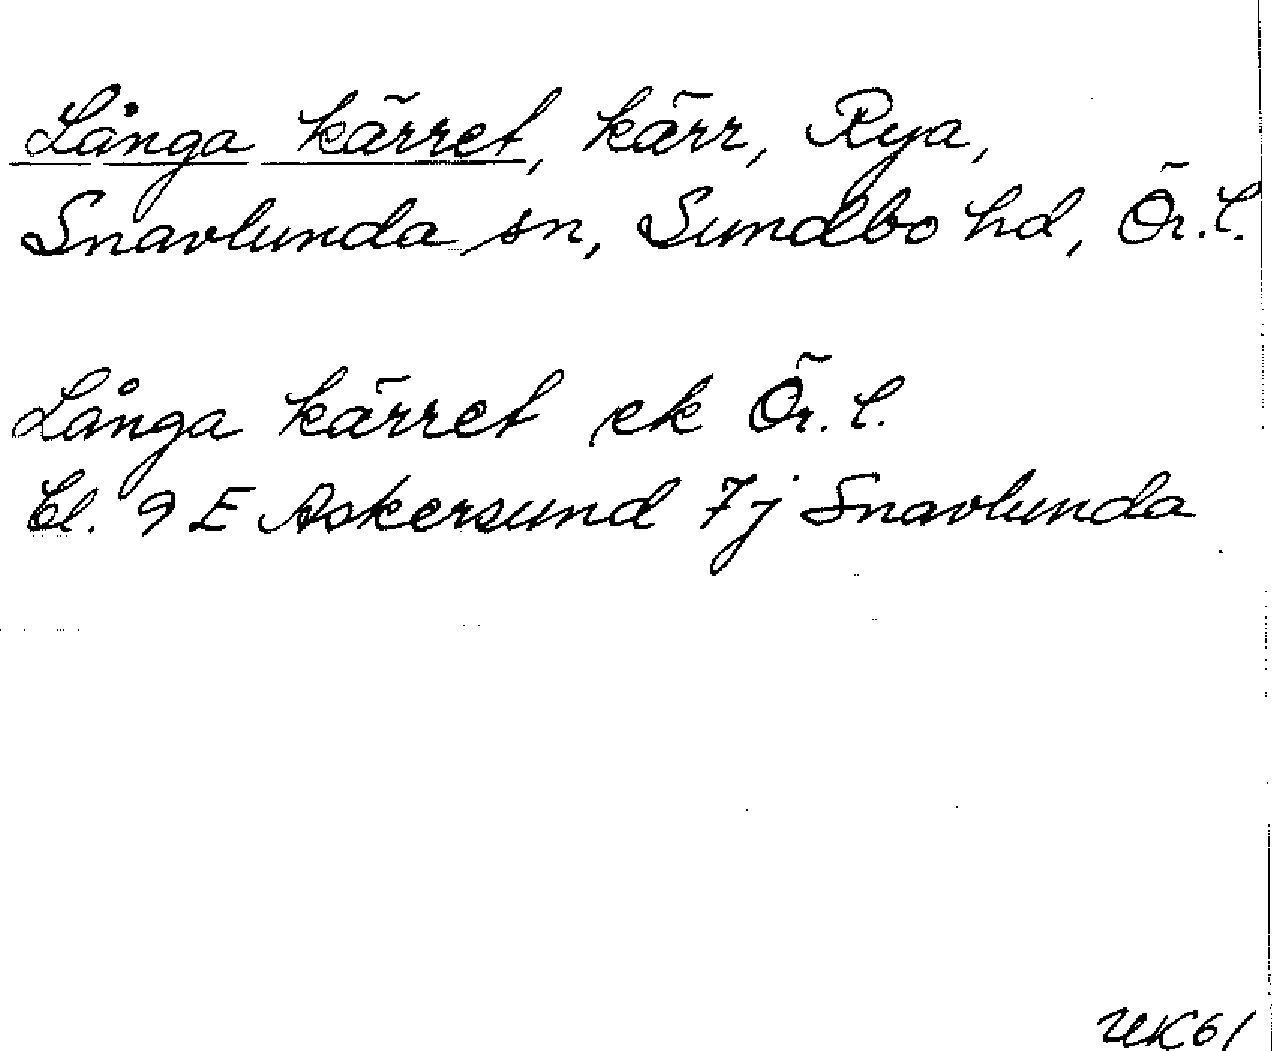 Långa kärret, kärr, Rya,
Snavlunda sn, Sundbo hd, Ör. l.
Långa kärret ek Ör. l.
Bl. 9 E Askersund 7j Snavlunda
UK61